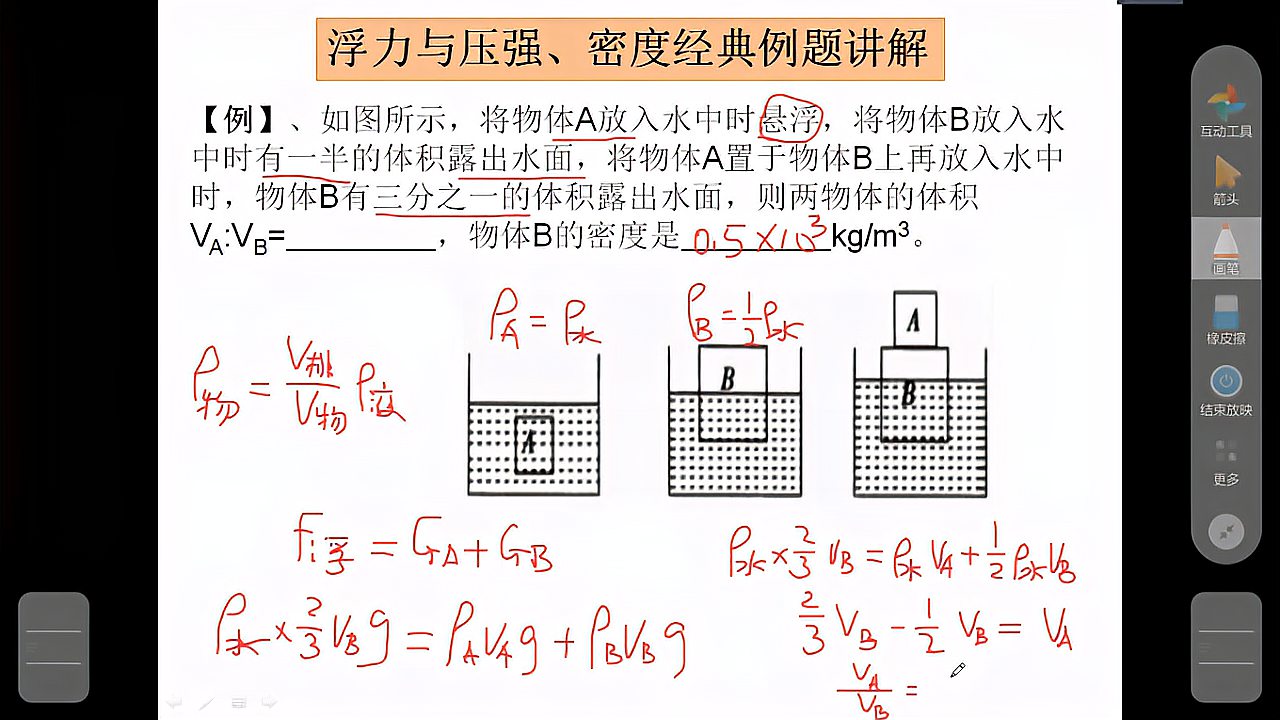 浮力与压强、密度经典例题讲解
【例】、如图所示，将物体A放入水中时悬浮，将物体B放入水
中时有一半的体积露出水面，将物体A置于物体B上再放入水中
时，物体B有三分之一的体积露出水面，则两物体的体积
VA:VB=_________，物体B的密度是 0.5×10³ kg/m³。
ρA = ρ水
ρB = 1/2 ρ水
ρ物 = V排/V物 ρ液
A
B
A
B
F浮 = GA + GB
ρ水 × 2/3 VB g = ρA VA g + ρB VB g
ρ水 × 2/3 VB = ρ水 VA + 1/2 ρ水 VB
2/3 VB - 1/2 VB = VA
VA/VB =
互动工具
箭头
画笔
橡皮擦
结束放映
更多